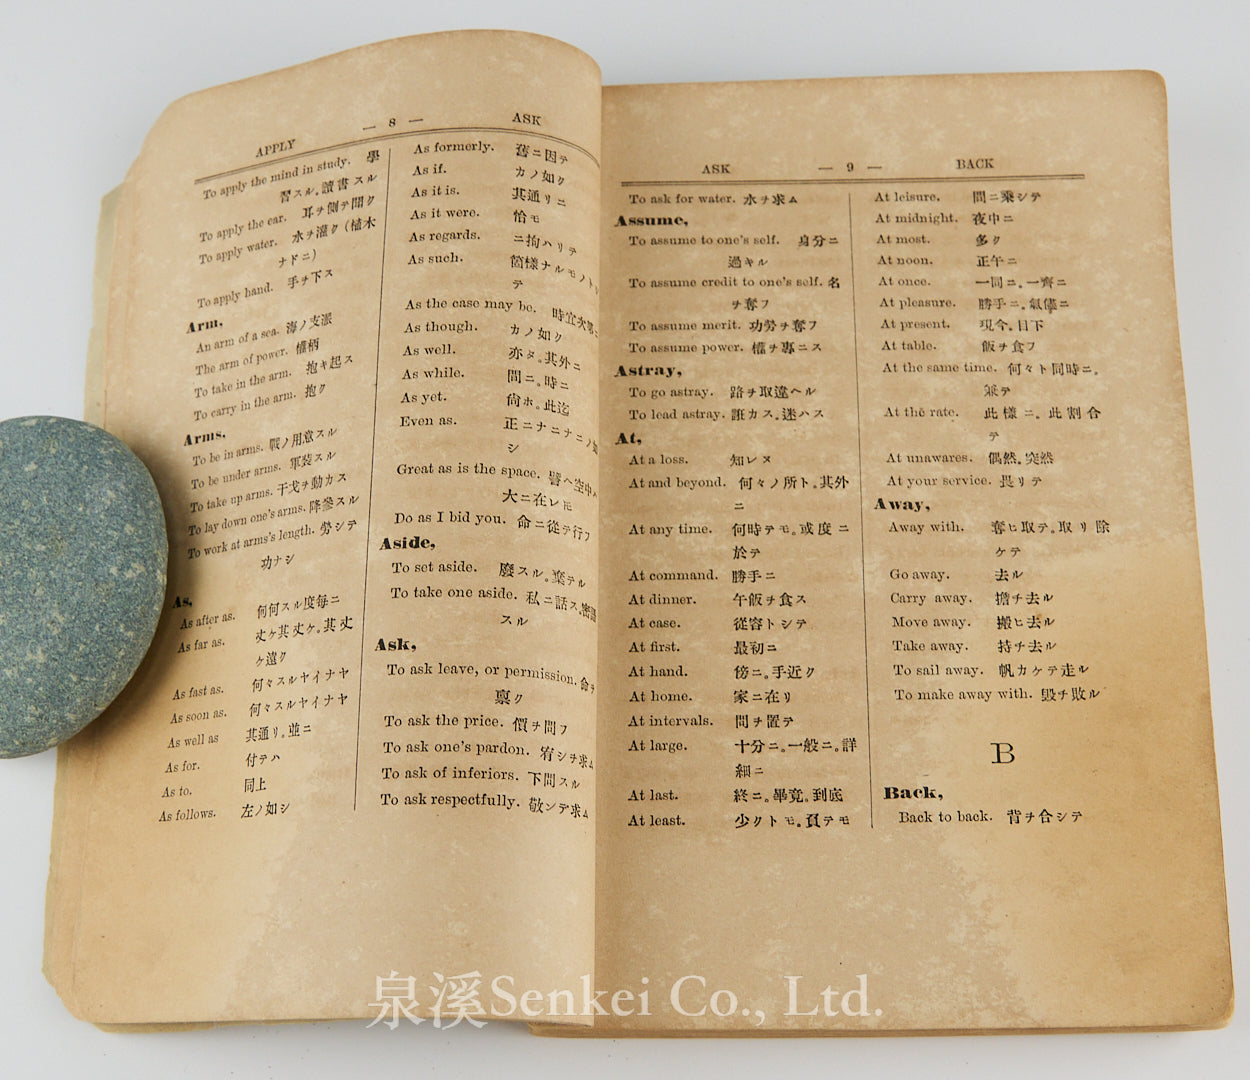 APPLY — 8 — ASK
To apply the mind in study. 學
習スル。讀書スル
To apply the ear. 耳チ側テ聞ク
To apply water. 水チ灌ク(植木
ナドニ)
To apply hand. 手チ下ス
Arm,
An arm of a sea. 海ノ支派
The arm of power. 權柄
To take in the arm. 抱キ起ス
To carry in the arm. 抱ク
Arms,
To be in arms. 戰ノ用意スル
To be under arms. 軍裝スル
To take up arms. 干戈チ動カス
To lay down one's arms. 降參スル
To work at arms's length. 勞シテ
功ナシ
As,
As after as. 何何スル度每ニ
As far as. 丈ケ其丈ケ。其丈
ケ遠ク
As fast as. 何々スルヤイナヤ
As soon as. 何々スルヤイナヤ
As well as 其通リ。並ニ
As for. 付テハ
As to. 同上
As follows. 左ノ如シ
As formerly. 舊ニ因テ
As if. カノ如ク
As it is. 其通リニ
As it were. 恰モ
As regards. ニ拘ハリテ
As such. 箇樣ナルモノト
テ
As the case may be. 時宜次第
As though. カノ如ク
As well. 亦タ。其外ニ
As while. 間ニ。時ニ
As yet. 尙ホ。此迄
Even as. 正ニナニナニノ如
シ
Great as is the space. 譬ヘ空中
大ニ在レ𪜈
Do as I bid you. 命ニ從テ行フ
Aside,
To set aside. 廢スル。棄テル
To take one aside. 私ニ話ス。密
スル
Ask,
To ask leave, or permission. 命チ
稟ク
To ask the price. 價チ問フ
To ask one's pardon. 宥シチ求ム
To ask of inferiors. 下問スル
To ask respectfully. 敬ンデ求ム
ASK — 9 — BACK
To ask for water. 水チ求ム
Assume,
To assume to one's self. 身分ニ
過キル
To assume credit to one's self. 名
チ奪フ
To assume merit. 功勞チ奪フ
To assume power. 權チ專ニス
Astray,
To go astray. 路チ取違ヘル
To lead astray. 誑カス。迷ハス
At,
At a loss. 知レヌ
At and beyond. 何々ノ所ト。其外
ニ
At any time. 何時テモ。或度ニ
於テ
At command. 勝手ニ
At dinner. 午飯チ食ス
At case. 從容トシテ
At first. 最初ニ
At hand. 傍ニ。手近ク
At home. 家ニ在リ
At intervals. 間チ置テ
At large. 十分ニ。一般ニ。詳
細ニ
At last. 終ニ。畢竟。到底
At least. 少クトモ。負テモ
At leisure. 間ニ乘シテ
At midnight. 夜中ニ
At most. 多ク
At noon. 正午ニ
At once. 一同ニ。一齊ニ
At pleasure. 勝手ニ。氣儘ニ
At present. 現今。目下
At table. 飯チ食フ
At the same time. 何々ト同時ニ。
乘テ
At the rate. 此樣ニ。此割合
テ
At unawares. 偶然。突然
At your service. 畏リテ
Away,
Away with. 奪ヒ取テ。取リ除
ケテ
Go away. 去ル
Carry away. 擔チ去ル
Move away. 搬ヒ去ル
Take away. 持チ去ル
To sail away. 帆カケテ走ル
To make away with. 毀チ敗ル
B
Back,
Back to back. 背チ合シテ
泉溪Senkei Co., Ltd.